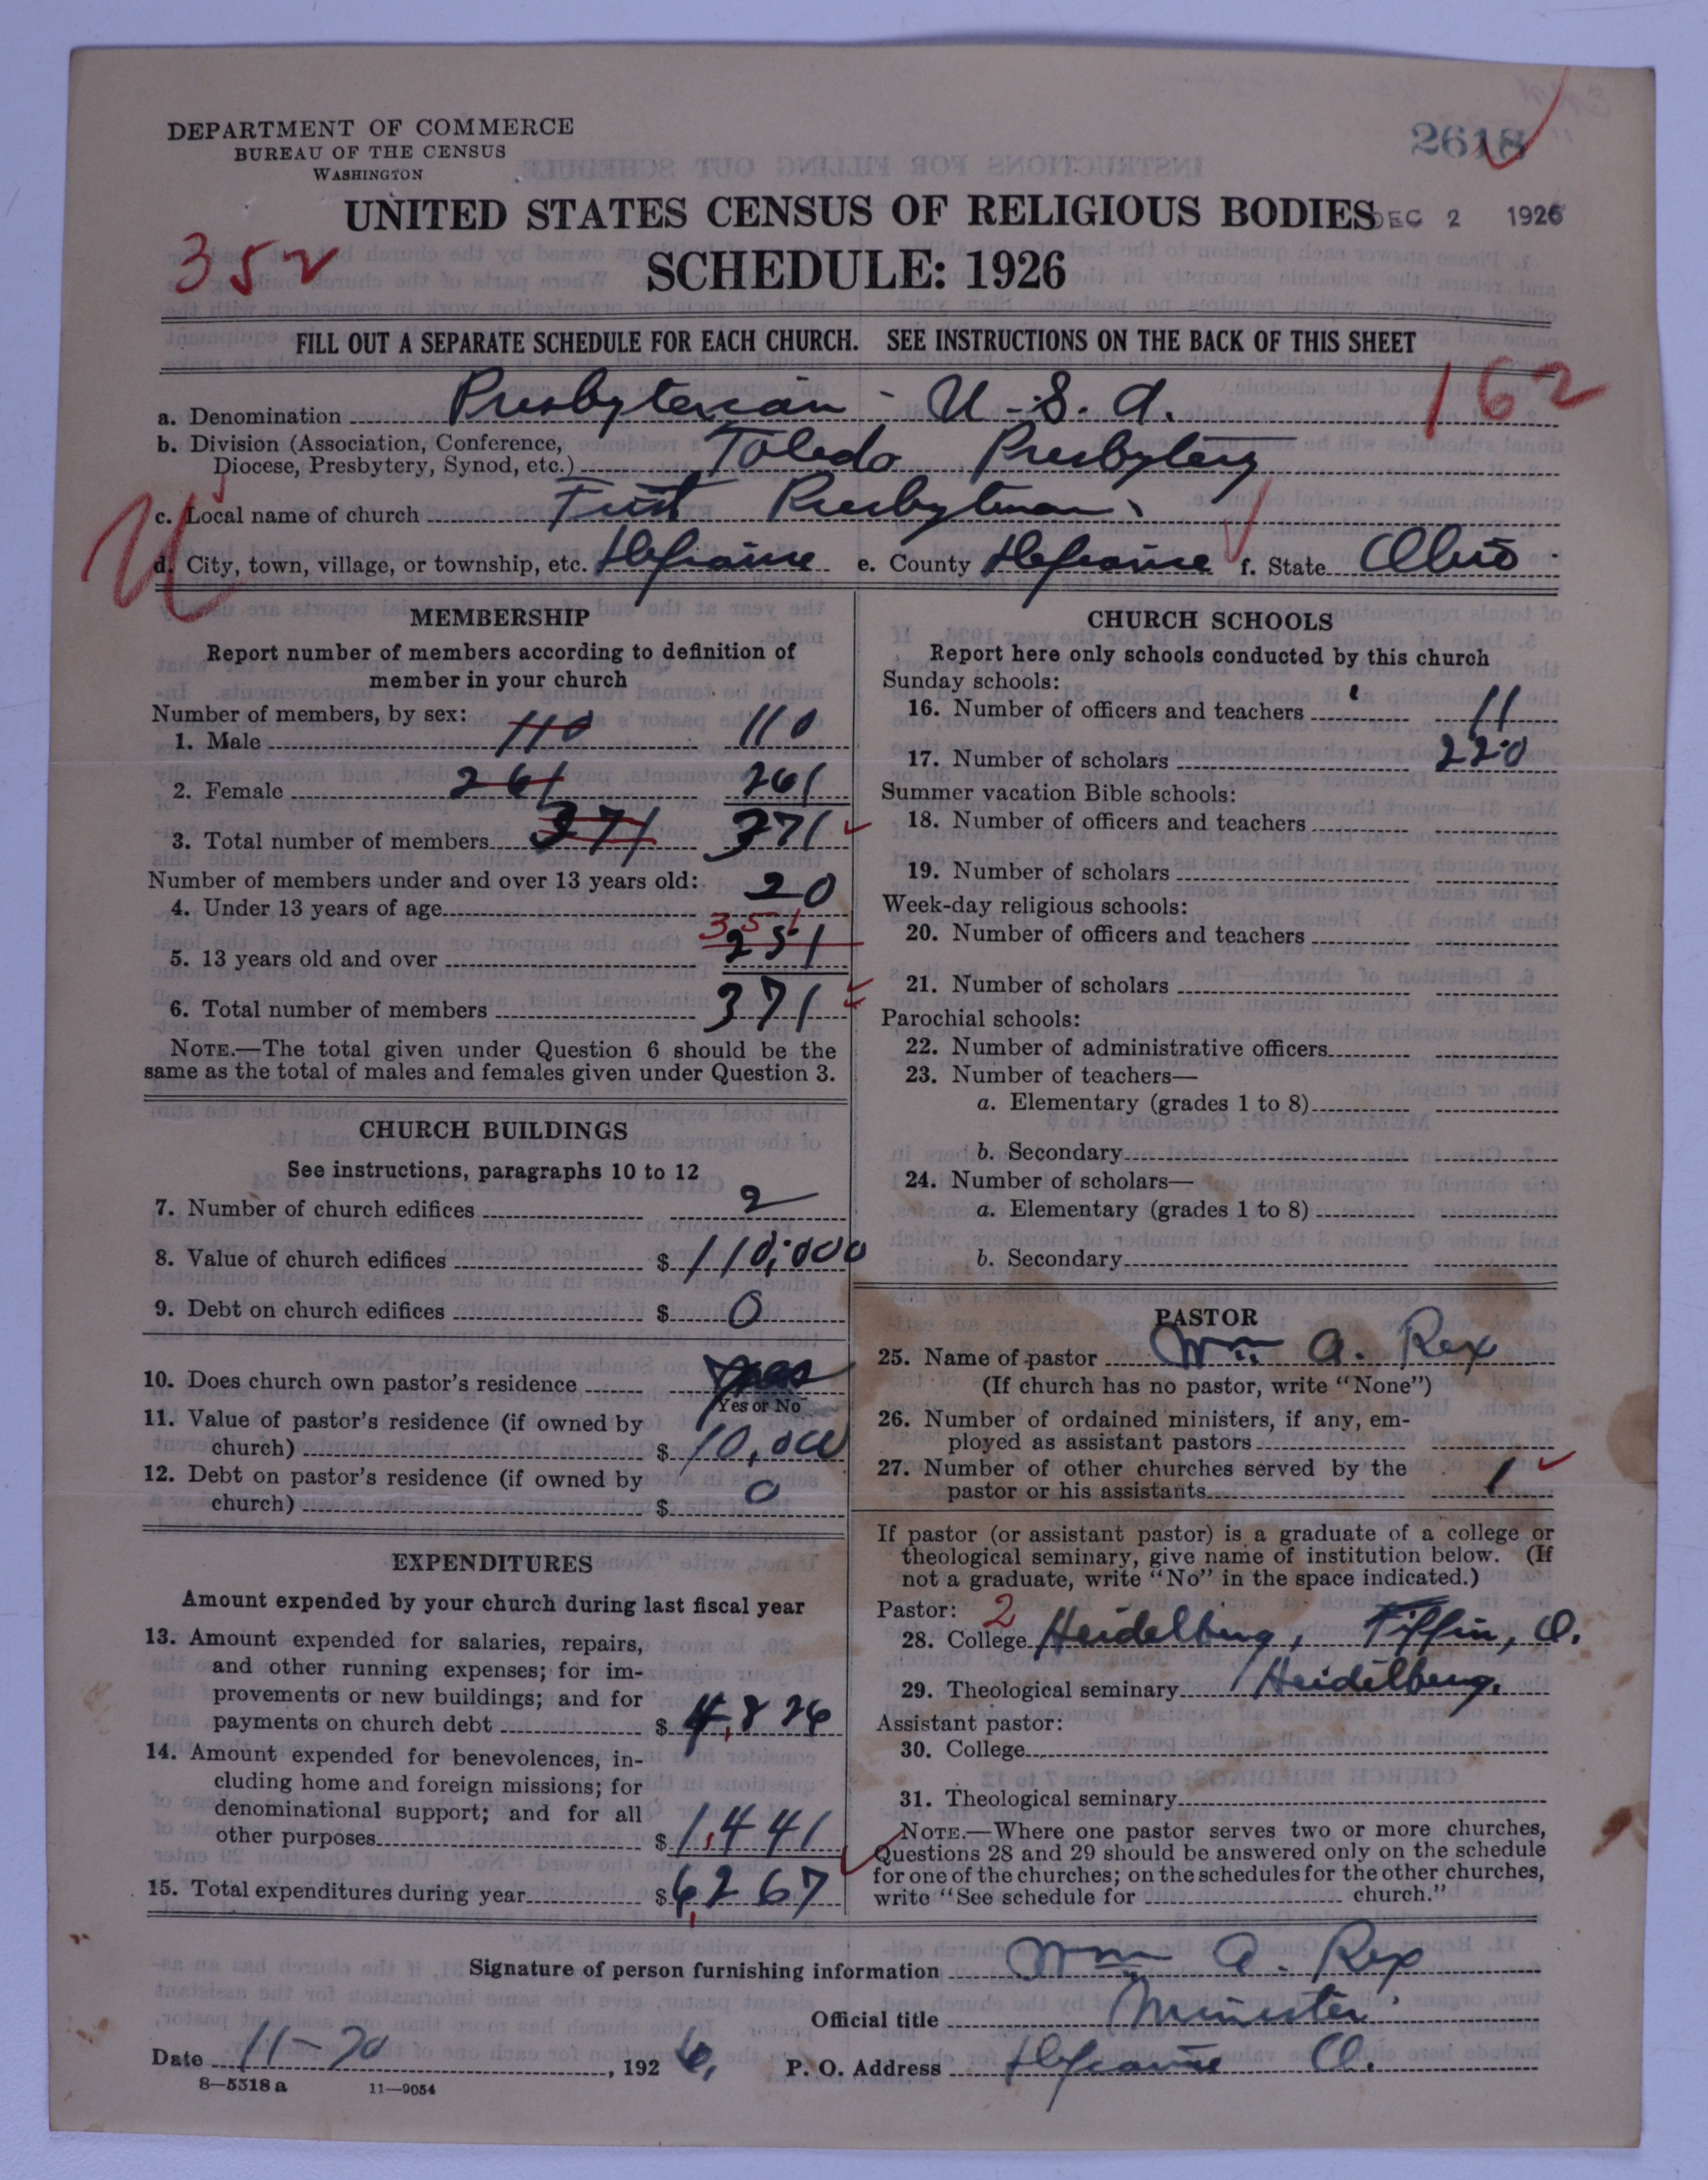 DEPARTMENT OF COMMERCE
BUREAU OF THE CENSUS
WASHINGTON
2618
UNITED STATES CENSUS OF RELIGIOUS BODIES
DEC 2 1926
352
SCHEDULE: 1926
FILL OUT A SEPARATE SCHEDULE FOR EACH CHURCH. SEE INSTRUCTIONS ON THE BACK OF THIS SHEET
162
a. Denomination Presbyterian - U.S.A.
b. Division (Association, Conference,
Diocese, Presbytery, Synod, etc.) Toledo Presbytery
c. Local name of church First Presbyterian
d. City, town, village, or township, etc. Defiance e. County Defiance f. State Ohio
MEMBERSHIP
Report number of members according to definition of
member in your church
Number of members, by sex:
1. Male 110 110
2. Female 261 261
3. Total number of members 371 371
Number of members under and over 13 years old:
4. Under 13 years of age 20
351
5. 13 years old and over 251
6. Total number of members 371
NOTE.—The total given under Question 6 should be the
same as the total of males and females given under Question 3.
CHURCH BUILDINGS
See instructions, paragraphs 10 to 12
7. Number of church edifices 2
8. Value of church edifices $ 110,000
9. Debt on church edifices $ 0
10. Does church own pastor's residence yes
Yes or No
11. Value of pastor's residence (if owned by
church) $ 10,000
12. Debt on pastor's residence (if owned by
church) $ 0
EXPENDITURES
Amount expended by your church during last fiscal year
13. Amount expended for salaries, repairs,
and other running expenses; for im-
provements or new buildings; and for
payments on church debt $ 4,826
14. Amount expended for benevolences, in-
cluding home and foreign missions; for
denominational support; and for all
other purposes $ 1,441
15. Total expenditures during year $ 6,267
CHURCH SCHOOLS
Report here only schools conducted by this church
Sunday schools:
16. Number of officers and teachers 11
17. Number of scholars 220
Summer vacation Bible schools:
18. Number of officers and teachers
19. Number of scholars
Week-day religious schools:
20. Number of officers and teachers
21. Number of scholars
Parochial schools:
22. Number of administrative officers
23. Number of teachers—
a. Elementary (grades 1 to 8)
b. Secondary
24. Number of scholars—
a. Elementary (grades 1 to 8)
b. Secondary
PASTOR
25. Name of pastor Wm A. Rex
(If church has no pastor, write "None")
26. Number of ordained ministers, if any, em-
ployed as assistant pastors
27. Number of other churches served by the
pastor or his assistants 1
If pastor (or assistant pastor) is a graduate of a college or
theological seminary, give name of institution below. (If
not a graduate, write "No" in the space indicated.)
Pastor: 2
28. College Heidelburg, Tiffin, O.
29. Theological seminary Heidelburg.
Assistant pastor:
30. College
31. Theological seminary
NOTE.—Where one pastor serves two or more churches,
Questions 28 and 29 should be answered only on the schedule
for one of the churches; on the schedules for the other churches,
write "See schedule for church."
Signature of person furnishing information Wm A. Rex
Official title Minister
Date 11-20, 1926, P. O. Address Defiance O.
8—5518 a 11—9054